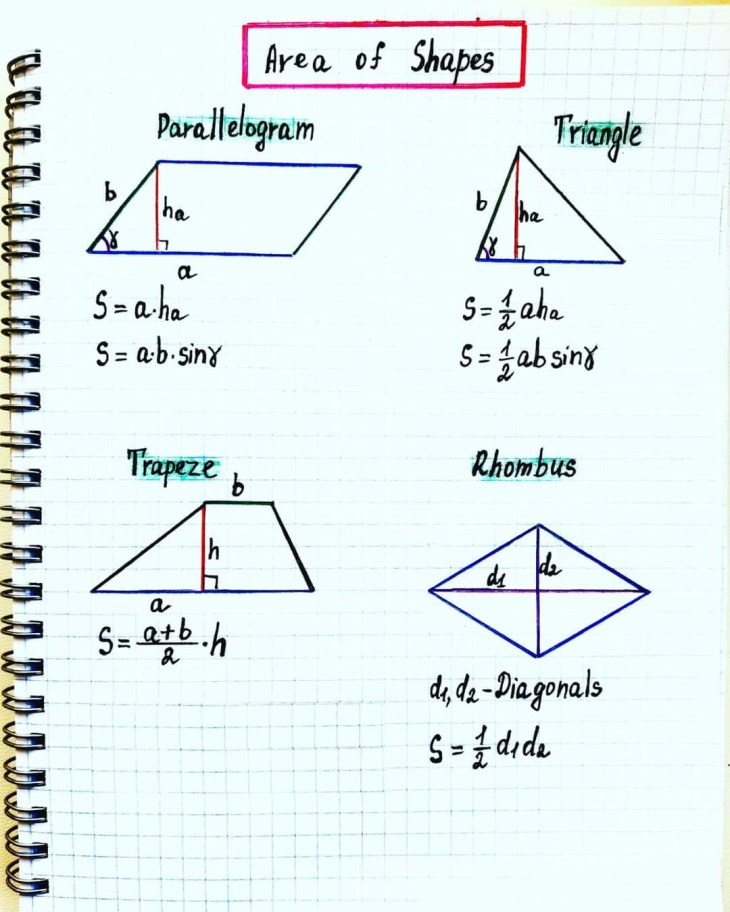 Area of Shapes
Parallelogram
b
ha
γ
a
S = a·ha
S = a·b·sinγ
Triangle
b
ha
γ
a
S = 1/2 aha
S = 1/2 ab sinγ
Trapeze
b
h
a
S = a+b/2 · h
Rhombus
d1
d2
d1, d2 - Diagonals
S = 1/2 d1d2